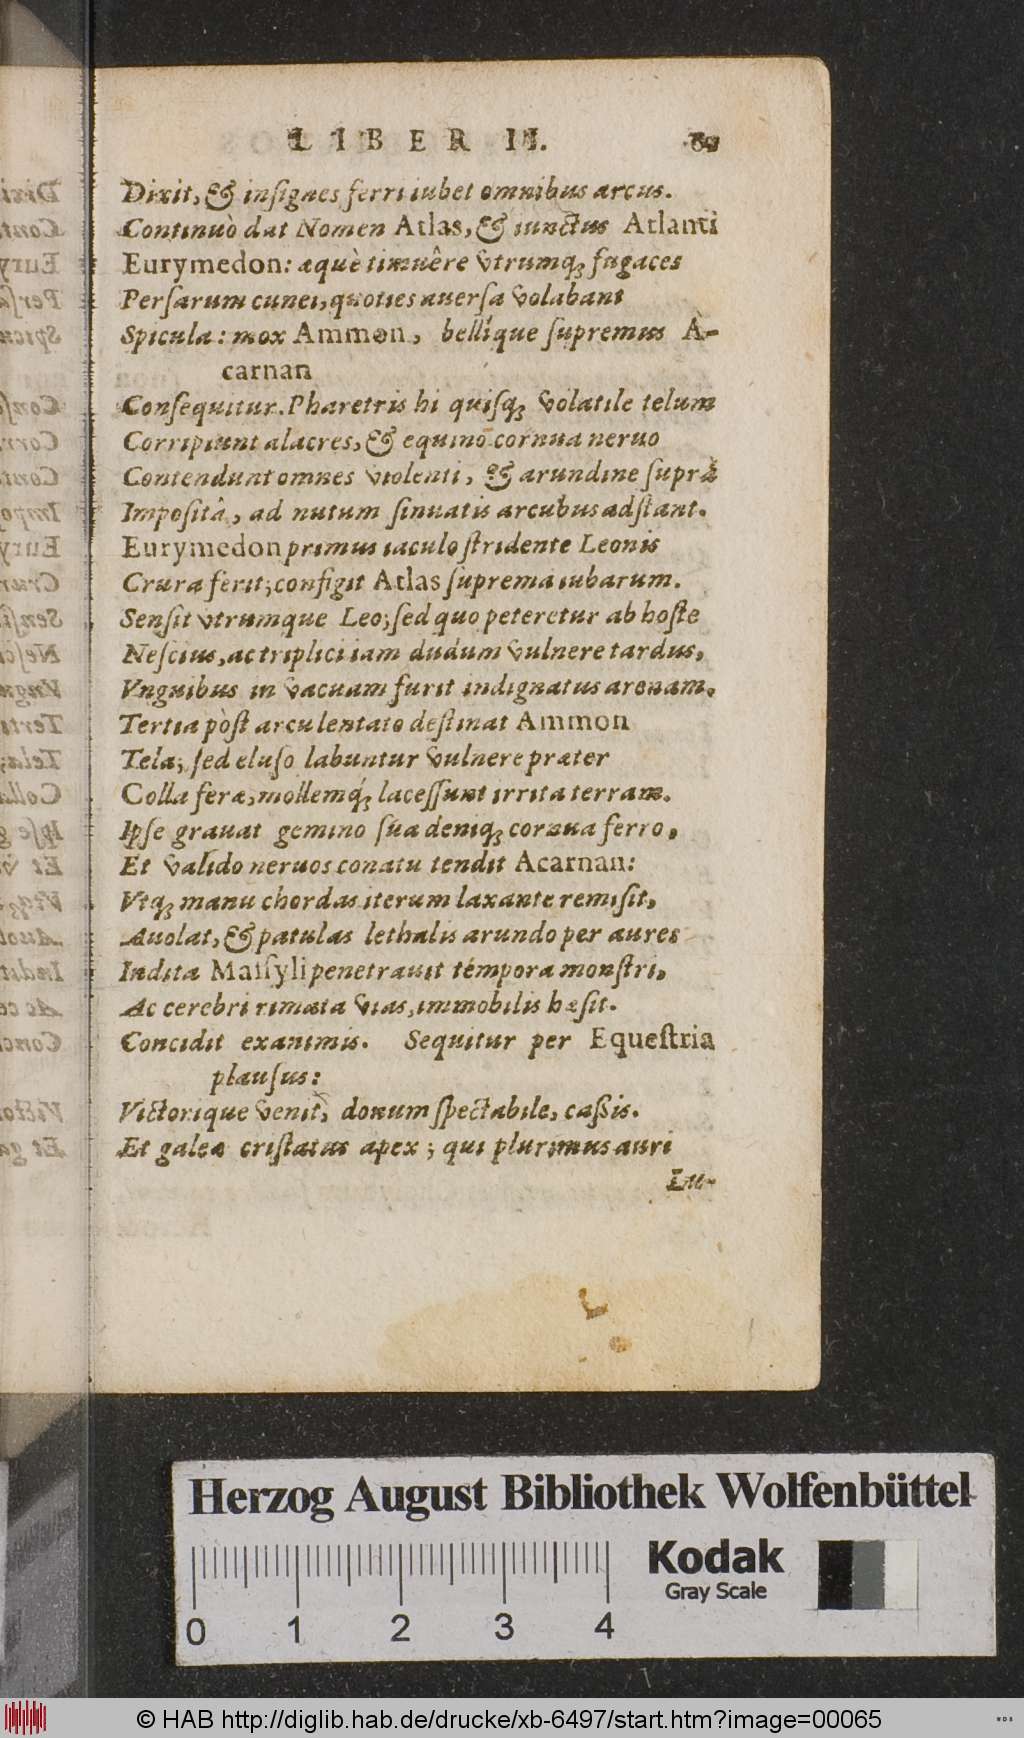 LIBER II.
Dixit, & insignes ferri iubet omnibus arcus.
Continuò dat Nomen Atlas, & iunctus Atlanti
Eurymedon: æquè timuêre vtrumq; fugaces
Persarum cunei, quoties auersa volabant
Spicula: mox Ammon, bellíque supremus À-
carnan
Consequitur. Pharetris hi quisq; volatile telum
Corripiunt alacres, & equino cornua neruo
Contendunt omnes violenti, & arundine suprà
Impositâ, ad nutum sinuatis arcubus adstant.
Eurymedon primus iaculo stridente Leonis
Crura ferit; configit Atlas suprema iubarum.
Sensit vtrumque Leo; sed quo peteretur ab hoste
Nescius, ac triplici iam dudum vulnere tardus,
Vnguibus in vacuam furit indignatus arenam.
Tertia pòst arcu lentato destinat Ammon
Tela; sed eluso labuntur vulnere præter
Colla feræ, mollemq́; lacessunt irrita terram.
Ipse grauat gemino sua deniq; cornua ferro,
Et valido neruos conatu tendit Acarnan:
Vtq; manu chordas iterum laxante remisit,
Auolat, & patulas lethalis arundo per aures
Indita Massyli penetrauit témpora monstri,
Ac cerebri rimata vias, immobilis hæsit.
Concidit exanimis. Sequitur per Equestria
plausus:
Victorique venit, donum spectabile, cassis.
Et galeæ cristatus apex; qui plurimus auri
Lu-
Herzog August Bibliothek Wolfenbüttel
Kodak
Gray Scale
0 1 2 3 4
© HAB http://diglib.hab.de/drucke/xb-6497/start.htm?image=00065